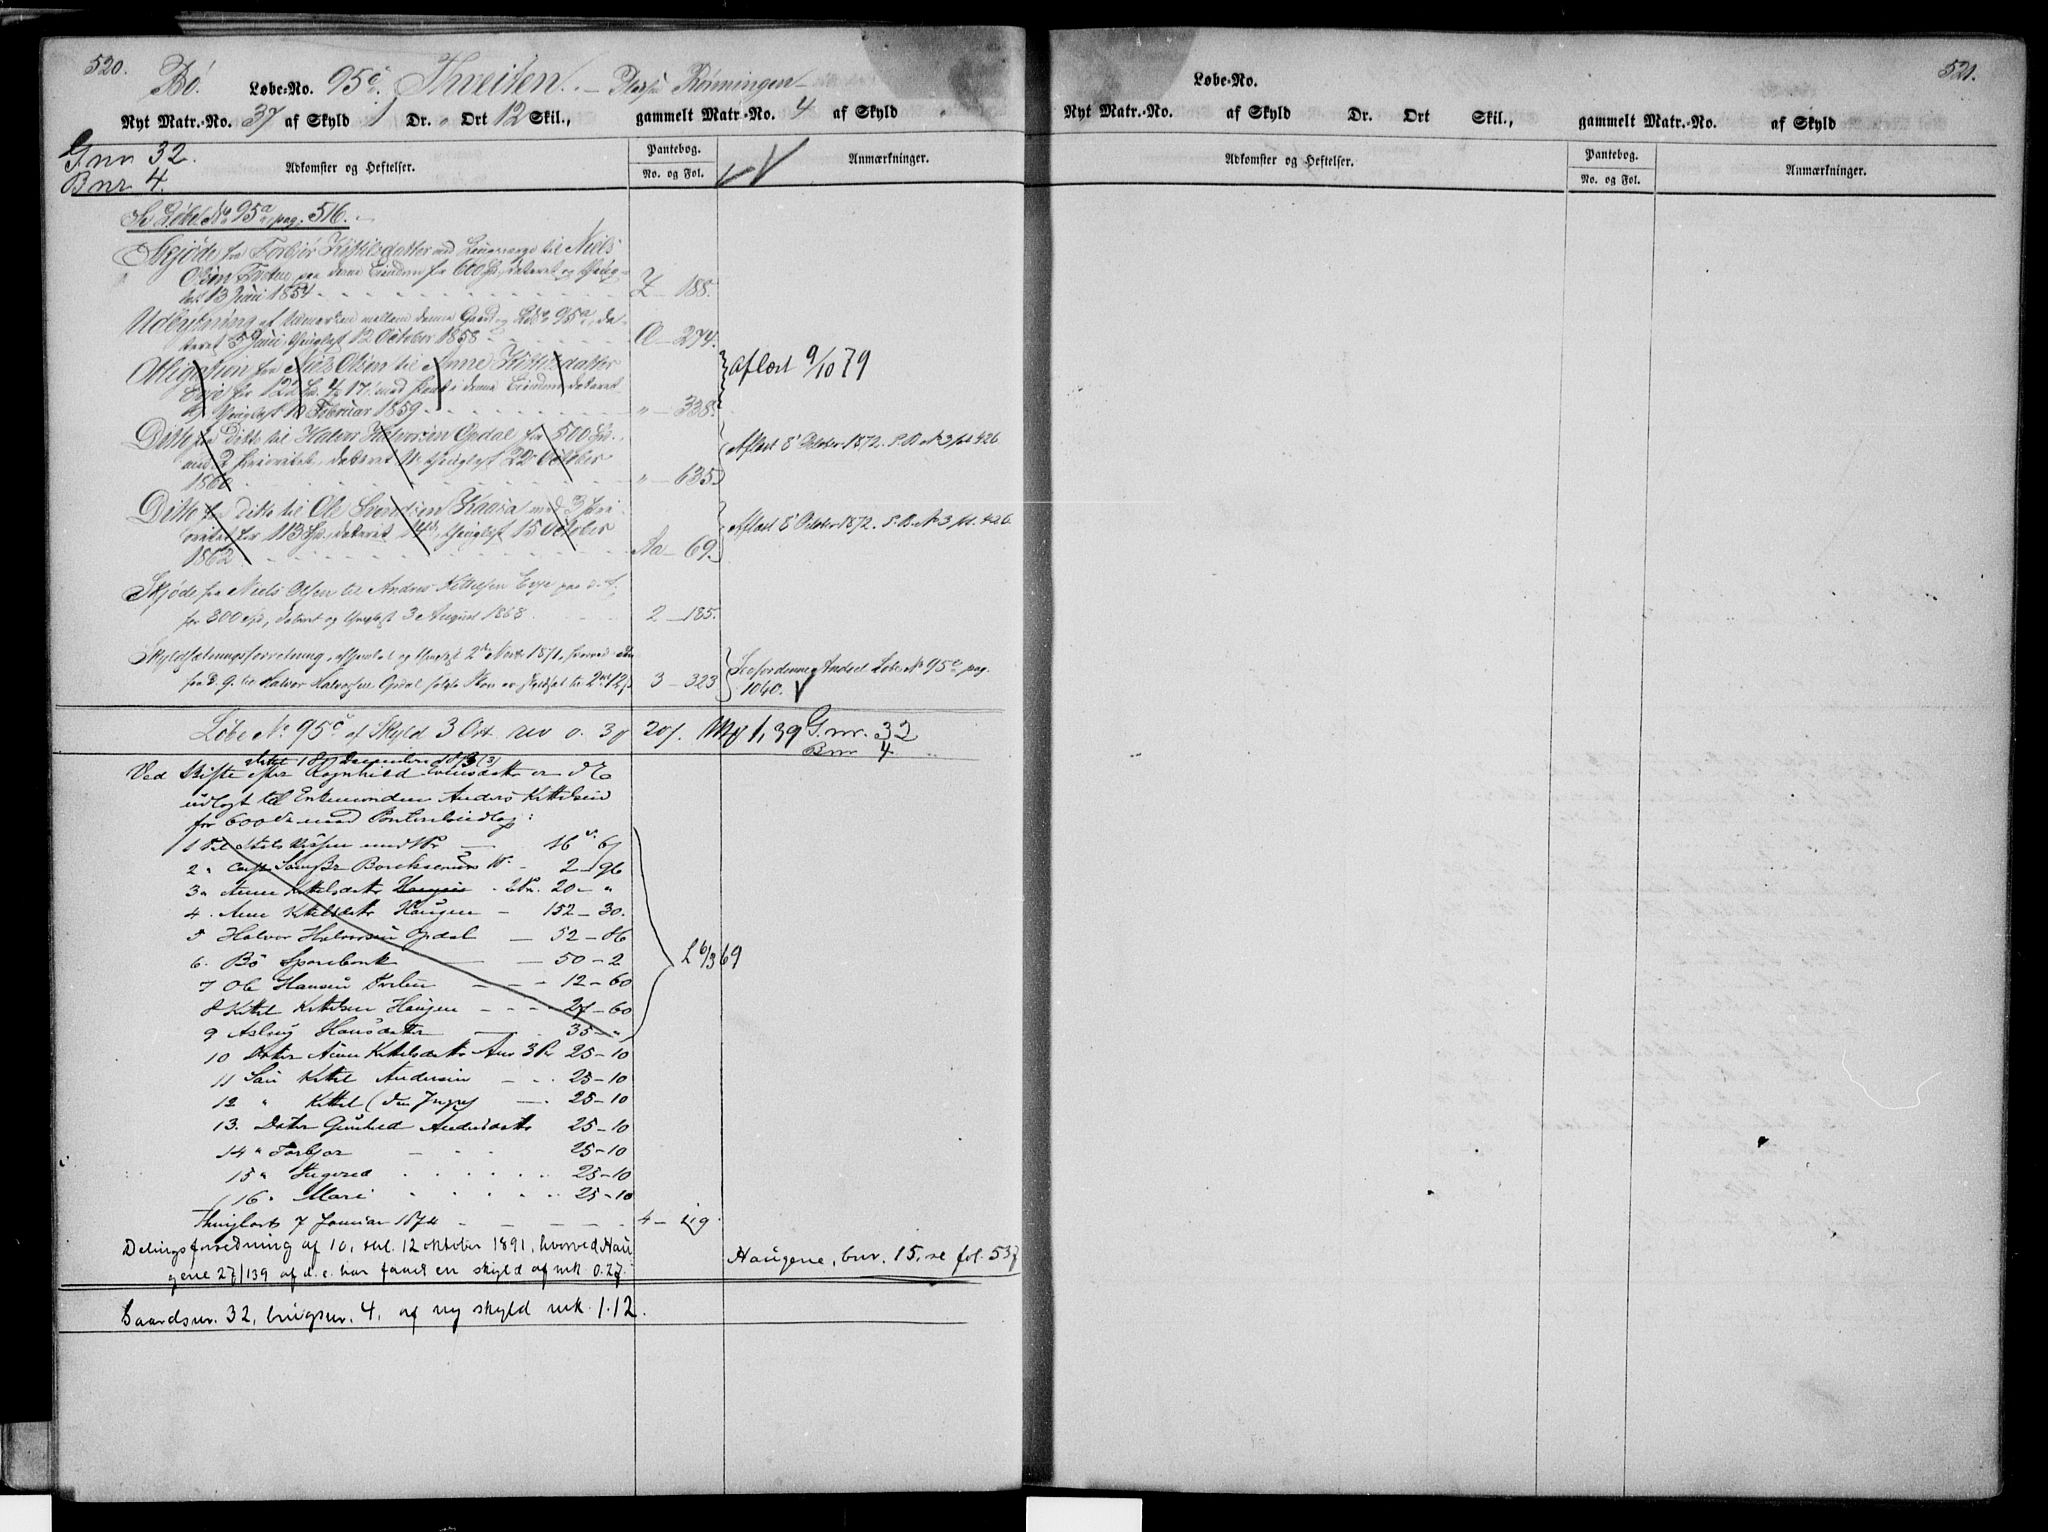 520.
Bö. Løbe-No. 95c. Kveiten. — Pladsen Rønningen —
Nyt Matr.-No. 37 af Skyld 1 Dr. " Ort 12 Skil., gammelt Matr.-No. 4 af Skyld
Gnr 32.
Bnr 4.
Adkomster og Heftelser.
Pantebog.
No. og Fol.
Anmærkninger.
Se Løbe No 95a pag. 516.
Skjøde fra Torbjør Kittilsdatter med Laugværge til Niels
Olsen paa denne Eiendom for 600 Spd, dateret og thing-
lest 13 Juni 1854 Z — 188.
Udskiftning af Udmarken mellem denne Gaard og LNo 95a, da-
teret 5 Juni, thinglyst 12 October 1858 Æ — 274.
Obligation fra Niels Olsen til Anne Kittilsdatter
Eeje for 121 Spd. 4/ 17, med Prior i denne Eiendom, dateret
og thinglyst 10 Februar 1859 " — 338. Aflæst 9/10 79
Ditto fra Ditto til Halvor Halvorsen Opdal for 500 Spd.
med 2 Prioritet, dateret 11, thinglyst 22 October
1860 " — 635. Aflæst 8 October 1872. P.B. No 3 fol. 426
Ditto fra ditto til Ole Svendsen Kaasa med 3 Prio-
ritet for 113 Spd., dateret 14de, thinglyst 15 October
1862 Aa — 69. Aflæst 8 October 1872. P.B. No 3 fol. 426.
Skjøde fra Niels Olsen til Anders Kittilsen Eeje paa d. E.
for 800 Spd, datert og thinglyst 3 August 1868 2 — 185.
Skyldsætningsforretning, afhjemlet og thinglyst 2den Novbr 1871, hvorved
fra d. G. til Halvor Halvorsen Opdal solgte Skov er skyldsat til 2 ort 12 s 3 — 323 Se fordenne Andeel Løbe No 95e pag.
1040.
Løbe No 95c af Skyld 3 Ort rev 0. 3 20/. Mk 1,39 Gnr. 32
Bnr 4
sluttet 18 December 1873 (3)
Ved Skifte efter Ragnhild er d. E.
udlagt til Enkemanden Anders Kittelsen
for 600 Sp mod Panteudlæg:
1 Til Niels med 1 Pr — 16 — 61
2 " 1 Pr. — 2 — 96
3 " Anne Kittelsdatter Haugen . 2 Pr. 20 — "
4. Anne Kittelsdatter Haugen — 152 — 30.
5 Halvor Halvorsen Opdal — 52 — 86
6. Bö Sparebank — 50 — 2
7 Ole Hansen — 12 — 60
8 Kittil Kittilsen Haugen — 27 — 60
9 Aslaug Hansdatter — 35 — "
L 6/3 69
10 Dater Anne Kittelsdatter Arv 3 Pr 25 — 10
11 Søn Kittil Andersen — 25 — 10
12 " Kittel (den Yngre) — 25 — 10
13. Dater Gunhild Andersdatter 25 — 10
14 " Torbjør — 25 — 10
15 " Ingered 25 — 10
16 " Mari 25 — 10
Thinglæst 7 Januar 1874 — 4 — 219.
Delingsforretning af 10, thl. 12 oktober 1891, hvorved Hau-
gene 27/139 af d. e. har faaet en skyld af mk 0.27. Haugene, bnr. 15, se fol. 537
Gaardsnr. 32, brugsnr. 4, af ny skyld mk. 1.12.
521.
Løbe-No.
Nyt Matr.-No. af Skyld Dr. Ort Skil., gammelt Matr.-No. af Skyld
Adkomster og Heftelser.
Pantebog.
No. og Fol.
Anmærkninger.